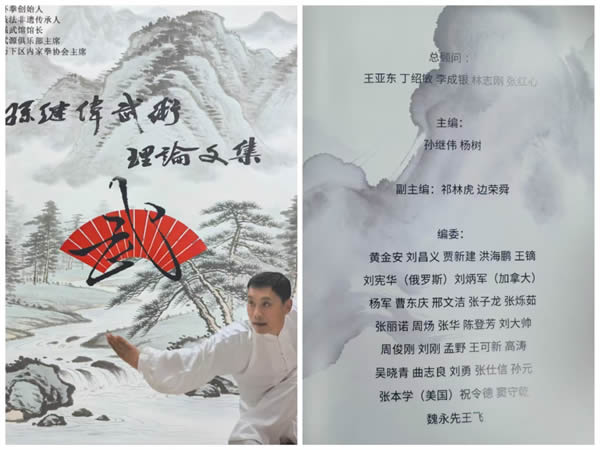 环拳创始人
法非遗传承人
武馆馆长
武源俱乐部主席
历下区内家拳协会主席
孙继伟武术
理论文集
武
总顾问：
王亚东 丁绍敏 李成银 林志刚 张红心
主编：
孙继伟 杨树
副主编：祁林虎 边荣舜
编委：
黄金安 刘昌义 贾新建 洪海鹏 王镝
刘宪华（俄罗斯）刘炳军（加拿大）
杨军 曹东庆 邢文洁 张子龙 张烁茹
张丽诺 周炀 张华 陈登芳 刘大帅
周俊刚 刘刚 孟野 王可新 高涛
吴晓青 曲志良 刘勇 张仕信 孙元
张本学（美国）祝令德 窦守乾
魏永先王飞